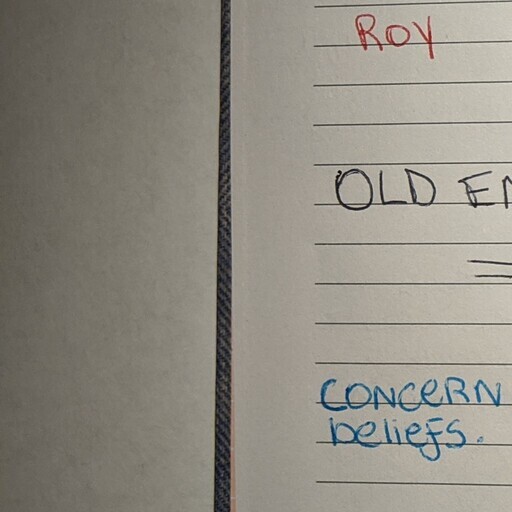 ROY
OLD EN
CONCERN
beliefs.